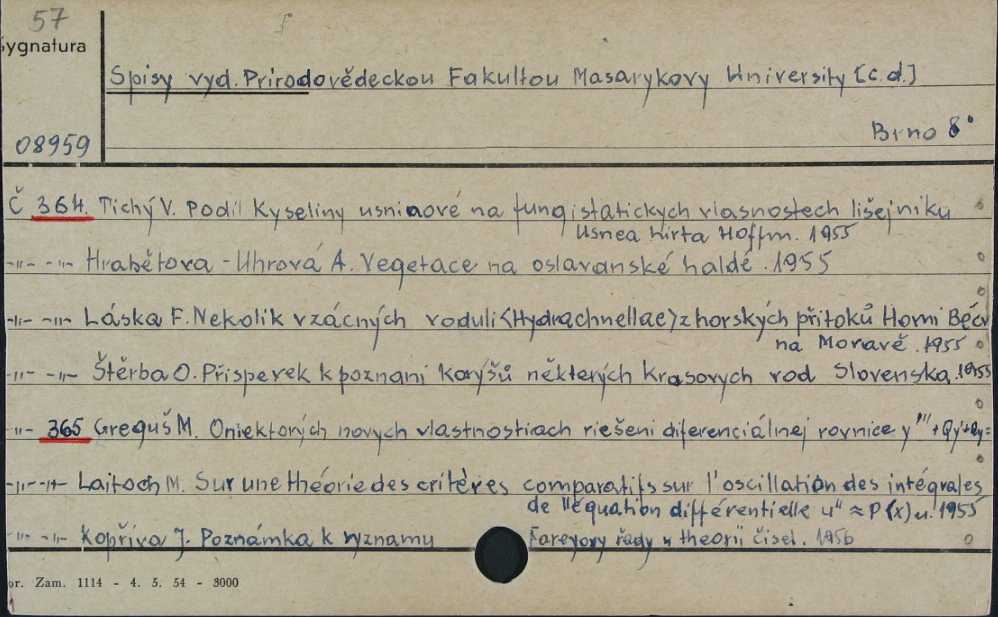 57
Sygnatura
Spisy vyd. Prirodovědeckou Fakultou Masarykovy University [c.d.]
08959
Brno 8°
Č 364. Tichý V. Podíl Kyseliny usninové na fungistatických vlasnostech lišejníku
Usnea hirta Hoffm. 1955
-"- -"- Hrabětova - Uhrová A. Vegetace na oslavanské haldé. 1955
-"- -"- Láska F. Nekolik vzácných voduli <Hydrachnellae> z horských přitoků Horni Béčv
na Moravě. 1955
-"- -"- Štěrba O. Přisperek k poznani Korýšů některých krasovych vod Slovenska. 1955
-"- 365 Greguš M. Oniektorých novych vlastnostiach riešeni diferenciálnej rovnice y'''+Qy'+Qy=
-"- -"- Laitoch M. Sur une théorie des critères comparatifs sur l'oscillation des intégrales
de "équation différentielle u" ≈ P(x)u. 1955
-"- -"- Kopřiva J. Poznámka k vyznamu Fareyovy řady v theorii čisel. 1956
or. Zam. 1114 - 4. 5. 54 - 3000